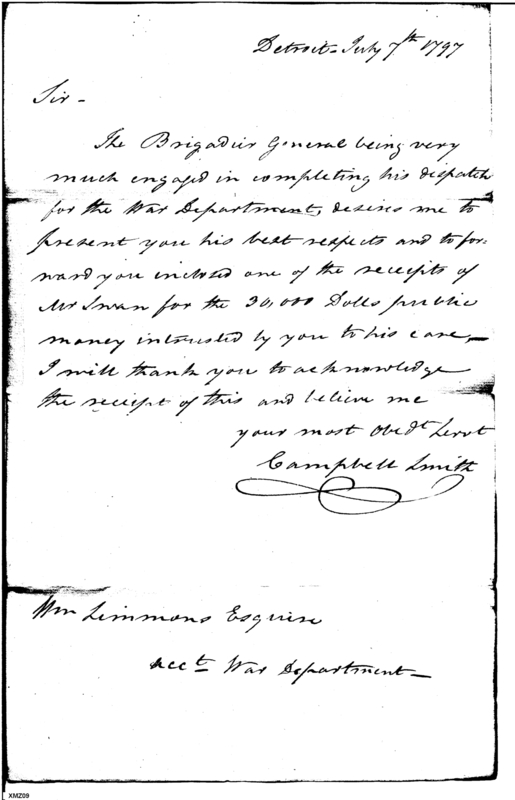 Detroit - July 7th 1797
Sir -
The Brigadier General being very
much engaged in completing his dispatch
for the War Department, desires me to
present you his best respects and to for:
ward you inclosed one of the receipts of
Mr Swan for the 30,000 Dolls public
money intrusted by you to his care,—
I will thank you to acknowledge
the receipt of this and believe me
your most Obedt Servt
Campbell Smith
Wm Simmons Esquire
Acct War Department —
XMZ09